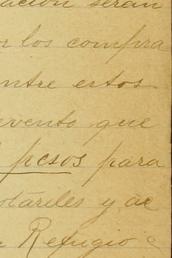 ación serán
r los compra
entre estos
evento que
pesos para
otariles y de
Refugio